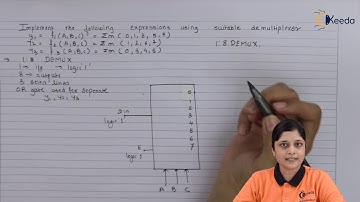 Implement the following expressions using suitable demultiplexer
y₁ = f₁ (A,B,C) = Σm (0,1,3,5,6)
y₂ = f₂ (A,B,C) = Σm (1,2,6,7)
y₃ = f₃ (A,B,C) = Σm (0,3,4,5)
1:8 DEMUX.
→ 1:8 DEMUX
1 → i/p → logic '1'
8 → outputs
3 select lines
OR gate used for separate
y₁, y₂, y₃
0
1
2
3
4
5
6
7
Din
logic '1'
E
logic '1'
A B C
Ekeeda